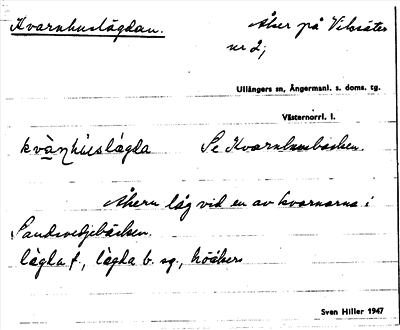 Kvarnhuslägdan.
Åker på Vibsäter
nr 2;
Ullångers sn, Ångermanl. s. doms. tg.
Västernorrl. l.
kvàṇhùslágda Se Kvarnhusbacken.
Åkern låg vid en av kvarnarna i
Sandsvedjebäcken.
lägda f., lägda b. sg.,
Sven Hiller 1947